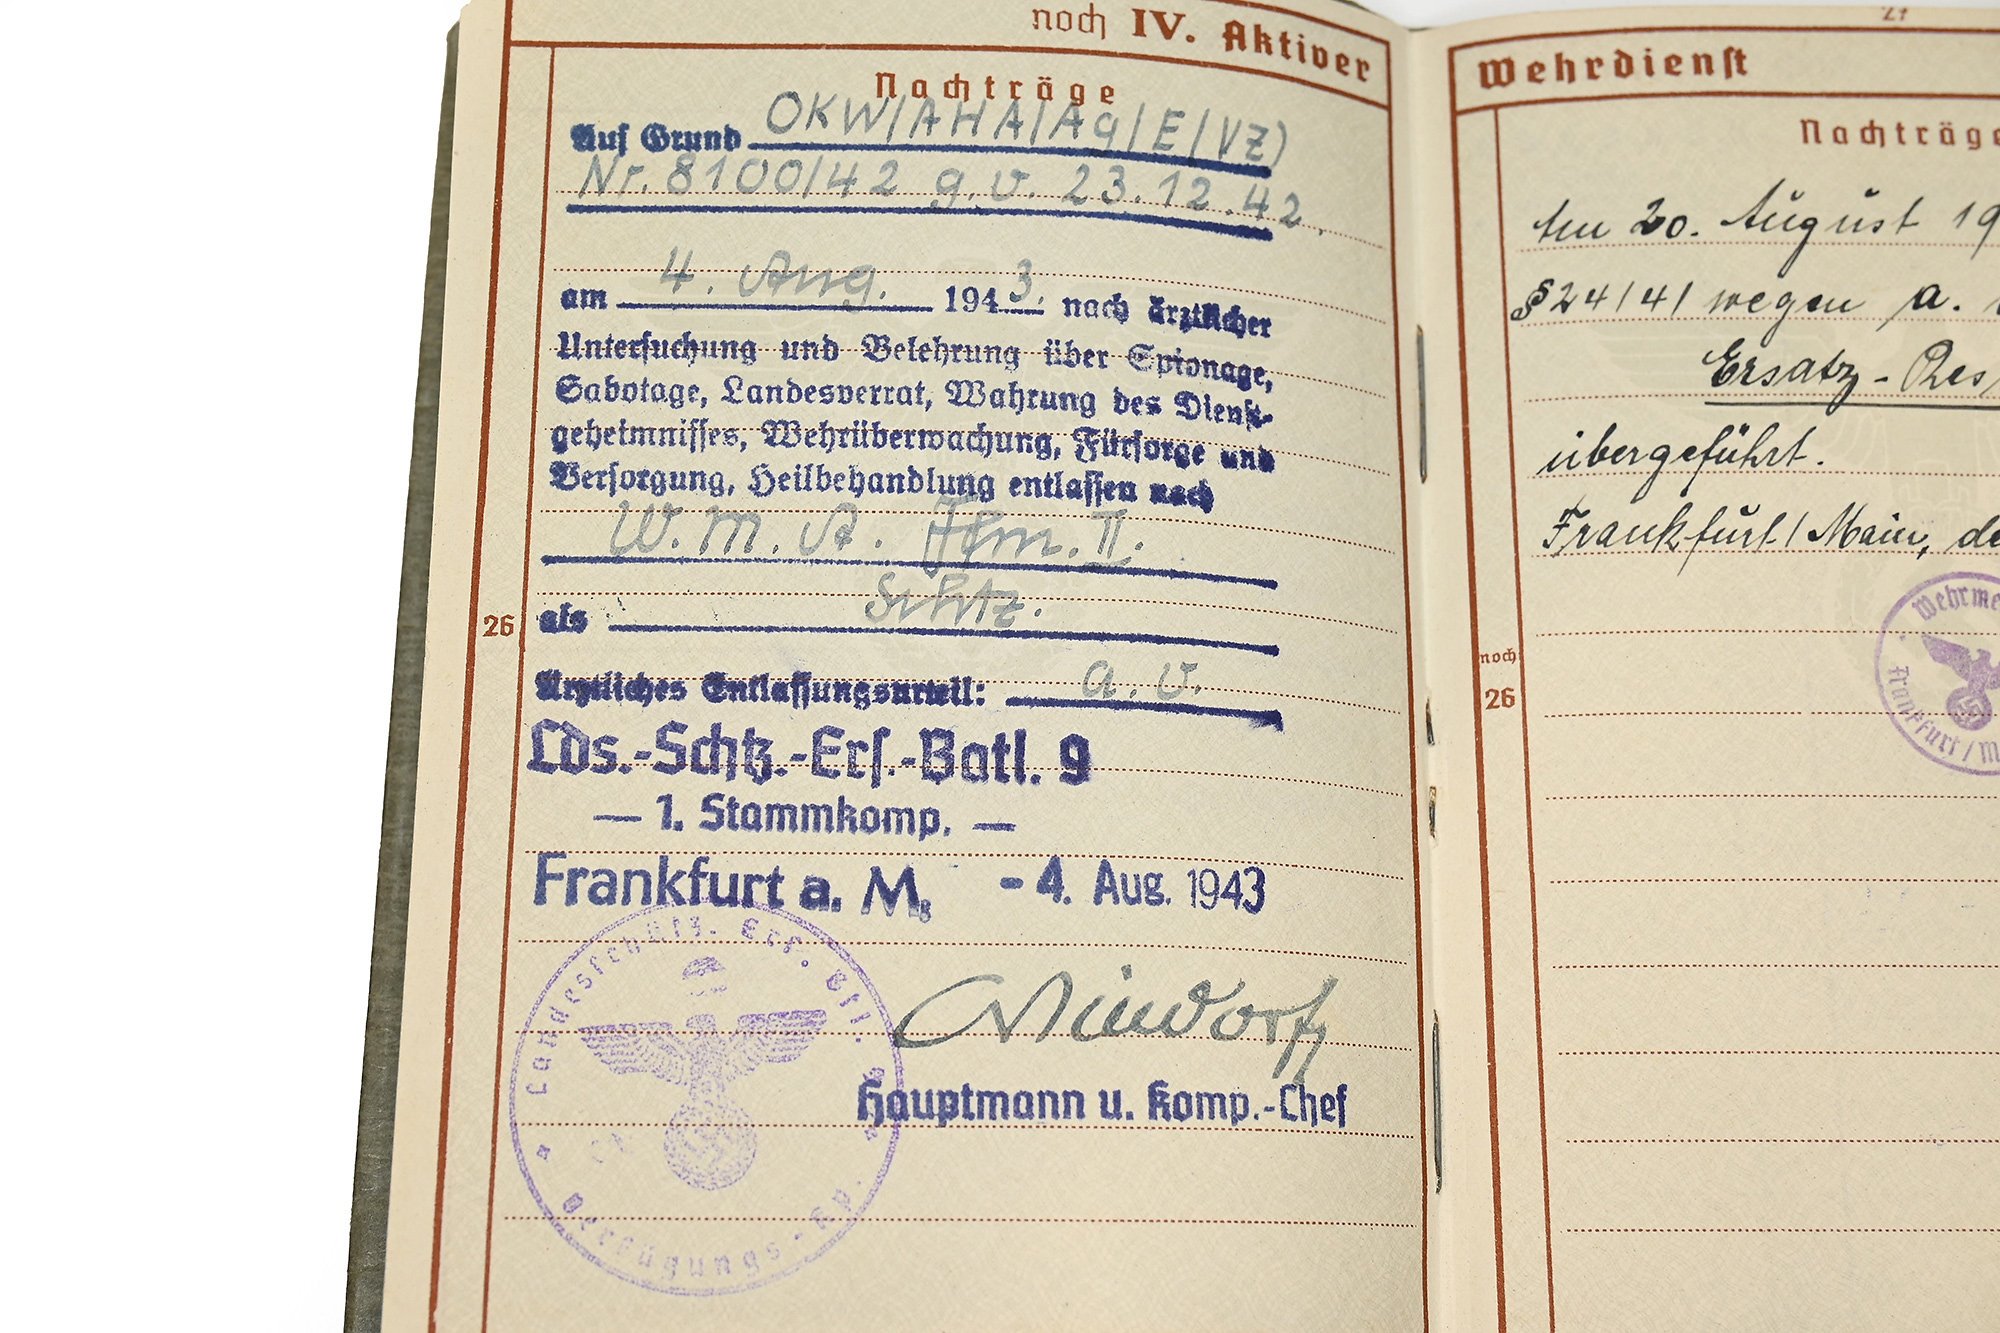 noch IV. Aktiver
Nachträge
Auf Grund OKW/AHA/Ag/E/(VZ)
Nr. 8100/42 g.v. 23.12.42.
am 4. Aug. 1943. nach ärztlicher
Untersuchung und Belehrung über Spionage,
Sabotage, Landesverrat, Wahrung des Dienst-
geheimnisses, Wehrüberwachung, Fürsorge und
Versorgung, Heilbehandlung entlassen nach
W.M.A. Ffm. II.
26 als Schtz.
Ärztliches Entlassungsurteil: a.v.
Lds.-Schtz.-Ers.-Batl. 9
— 1. Stammkomp. —
Frankfurt a. M. - 4. Aug. 1943
Landesschütz. Ers. Btl. 9
Verfügungs-Kp.
Hauptmann u. Komp.-Chef
27
Wehrdienst
Nachträge
Am 20. August 19
§24/41 wegen a.
Ersatz-Res
übergeführt.
Frankfurt/Main, de
noch
26
Wehrme
Frankfurt/M